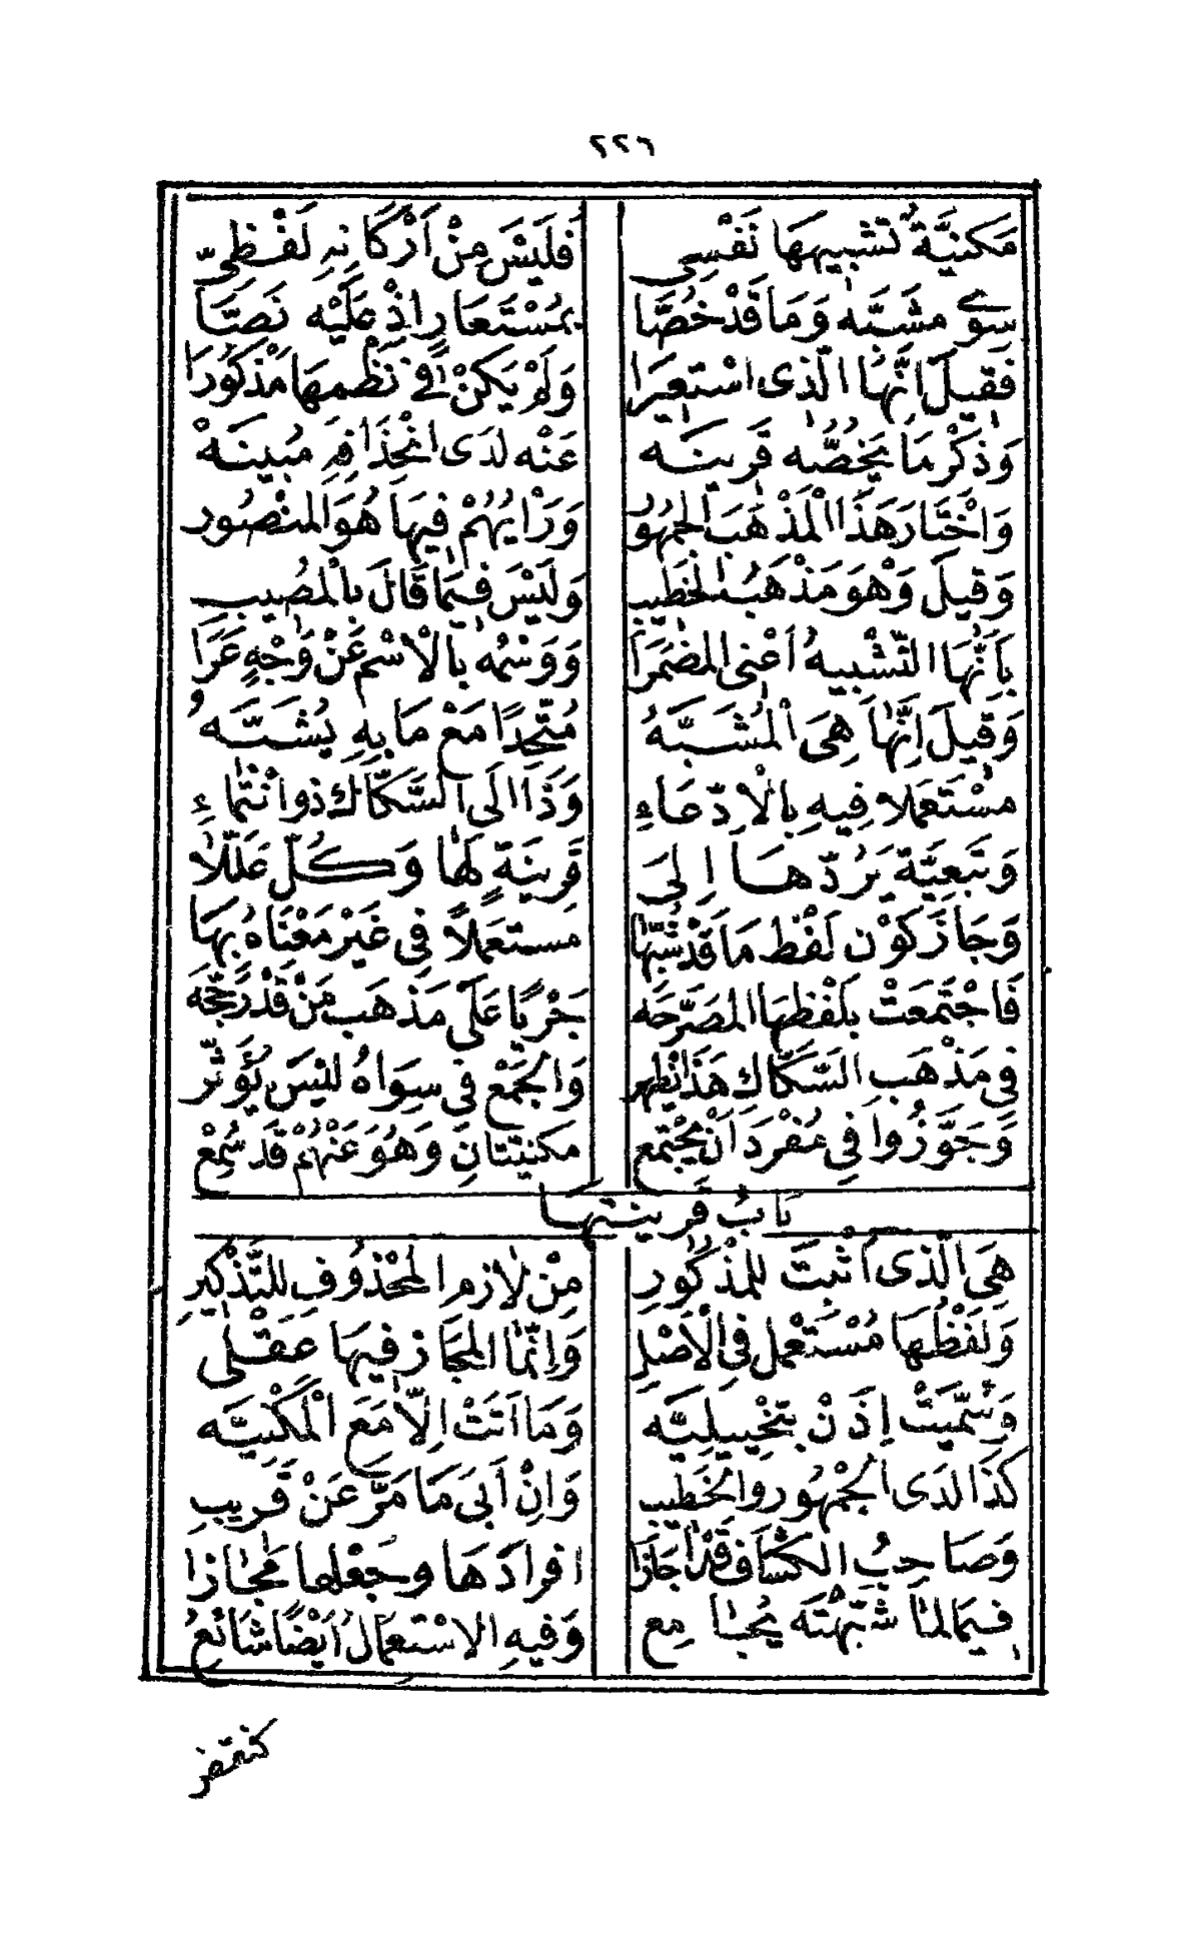 ٢٢٦
مَكنيَّةٌ تَشبيهُهَا نَفْسِى فَلَيْسَ مِنْ اَرْكَانِهِ لَفْظِىّ
سِوى مشَبَّه وَمَا قَدْ خُصَّا بمُسْتَعَارٍ اِذْ عَلَيْه نَصَّا
فَقيلَ انَّهَا الَّذى اسْتعيرَا وَلَمْ يَكنْ فى نَظْمهَا مَذْكُورَا
وَذكْرُ مَا يَخُصُّه قَرينَه عَنْه لدَى انْحِذَافِهِ مُبينَهْ
وَاخْتَارَ هَذَا الْمَذْهَبَ الجُمْهُورُ وَرَأْيُهُمْ فيهَا هُوَ المنْصُور
وَقيلَ وَهْوَ مَذْهَبُ الخَطيب وَلَيْسَ فيمَا قَالَ بِالْمُصيبِ
بِأَنَّهَا التَّشْبيهُ اَعْنى المضمَرَا وَوَسْمُه بِالْاسْم عَنْ وَجْهٍ عَرَا
وَقيلَ اِنَّهَا هِىَ الْمُشَبَّهُ مُتَّحِدًا مَعْ مَا بِهِ يُشَبَّه
مُسْتَعْمَلًا فِيهِ بِالْاِدِّعَاءِ وَذَا الَى السَّكَّاكِ ذو انْتمَاءِ
وَتَبَعِيَّةٌ يَرُدّهَا اِلىَ قَرِينَةٍ لَهَا وَكُلّ عَلَّلَا
وَجَازَ كَوْن لَفْظ مَا قَدْ شَبَّهَا مستعمَلًا فى غَيْرِ مَعْنَاهُ بِهَا
فَاجْتَمَعَتْ بِلَفْظهَا المصَرَّحَه جَرْيًا عَلَى مَذْهَب مَنْ قَدْ رَجَّحَه
فى مَذْهَبِ السَّكَّاكِ هَذَا يَظهر وَالجَمْع فى سِوَاهُ لَيْسَ يُؤَثَّر
وَجَوَّزُوا فِى مُفْرَدَ اَنْ يَجْتَمع مَكنيَّتَانِ وَهُوَ عَنْهُمْ قَد سُمِعْ
بَابُ قَرينَتهَا
هِىَ الَّذى اُثْبِتَ لِلمَذْكُورِ مِنْ لَازِمِ المَحْذُوفِ لِلتَّذْكِيرِ
وَلَفْظُهَا مُسْتَعْمل فى الْاَصْلِ وَاِنَّمَا المجَازُ فِيهَا عَقْلى
وَسُمِّيَتْ اِذَنْ بتَخْييلِيَّه وَمَا اَتَتْ اِلَّا مَعَ الْمَكْنِيَّه
كَذَا لَدَى الجُمْهُورِ وَالخَطيبِ وَاِنْ اَبَى مَا مَرَّ عَنْ قَريبِ
وَصَاحِبُ الكَشَّافِ قَدْ اَجَازَا افرادَهَا وَجَعْلهَا مَجَازا
فيمَا لمَا شَبَّهْتَه يُجَامِع وَفيهِ الاسْتعمَالُ اَيْضًا شَائعُ